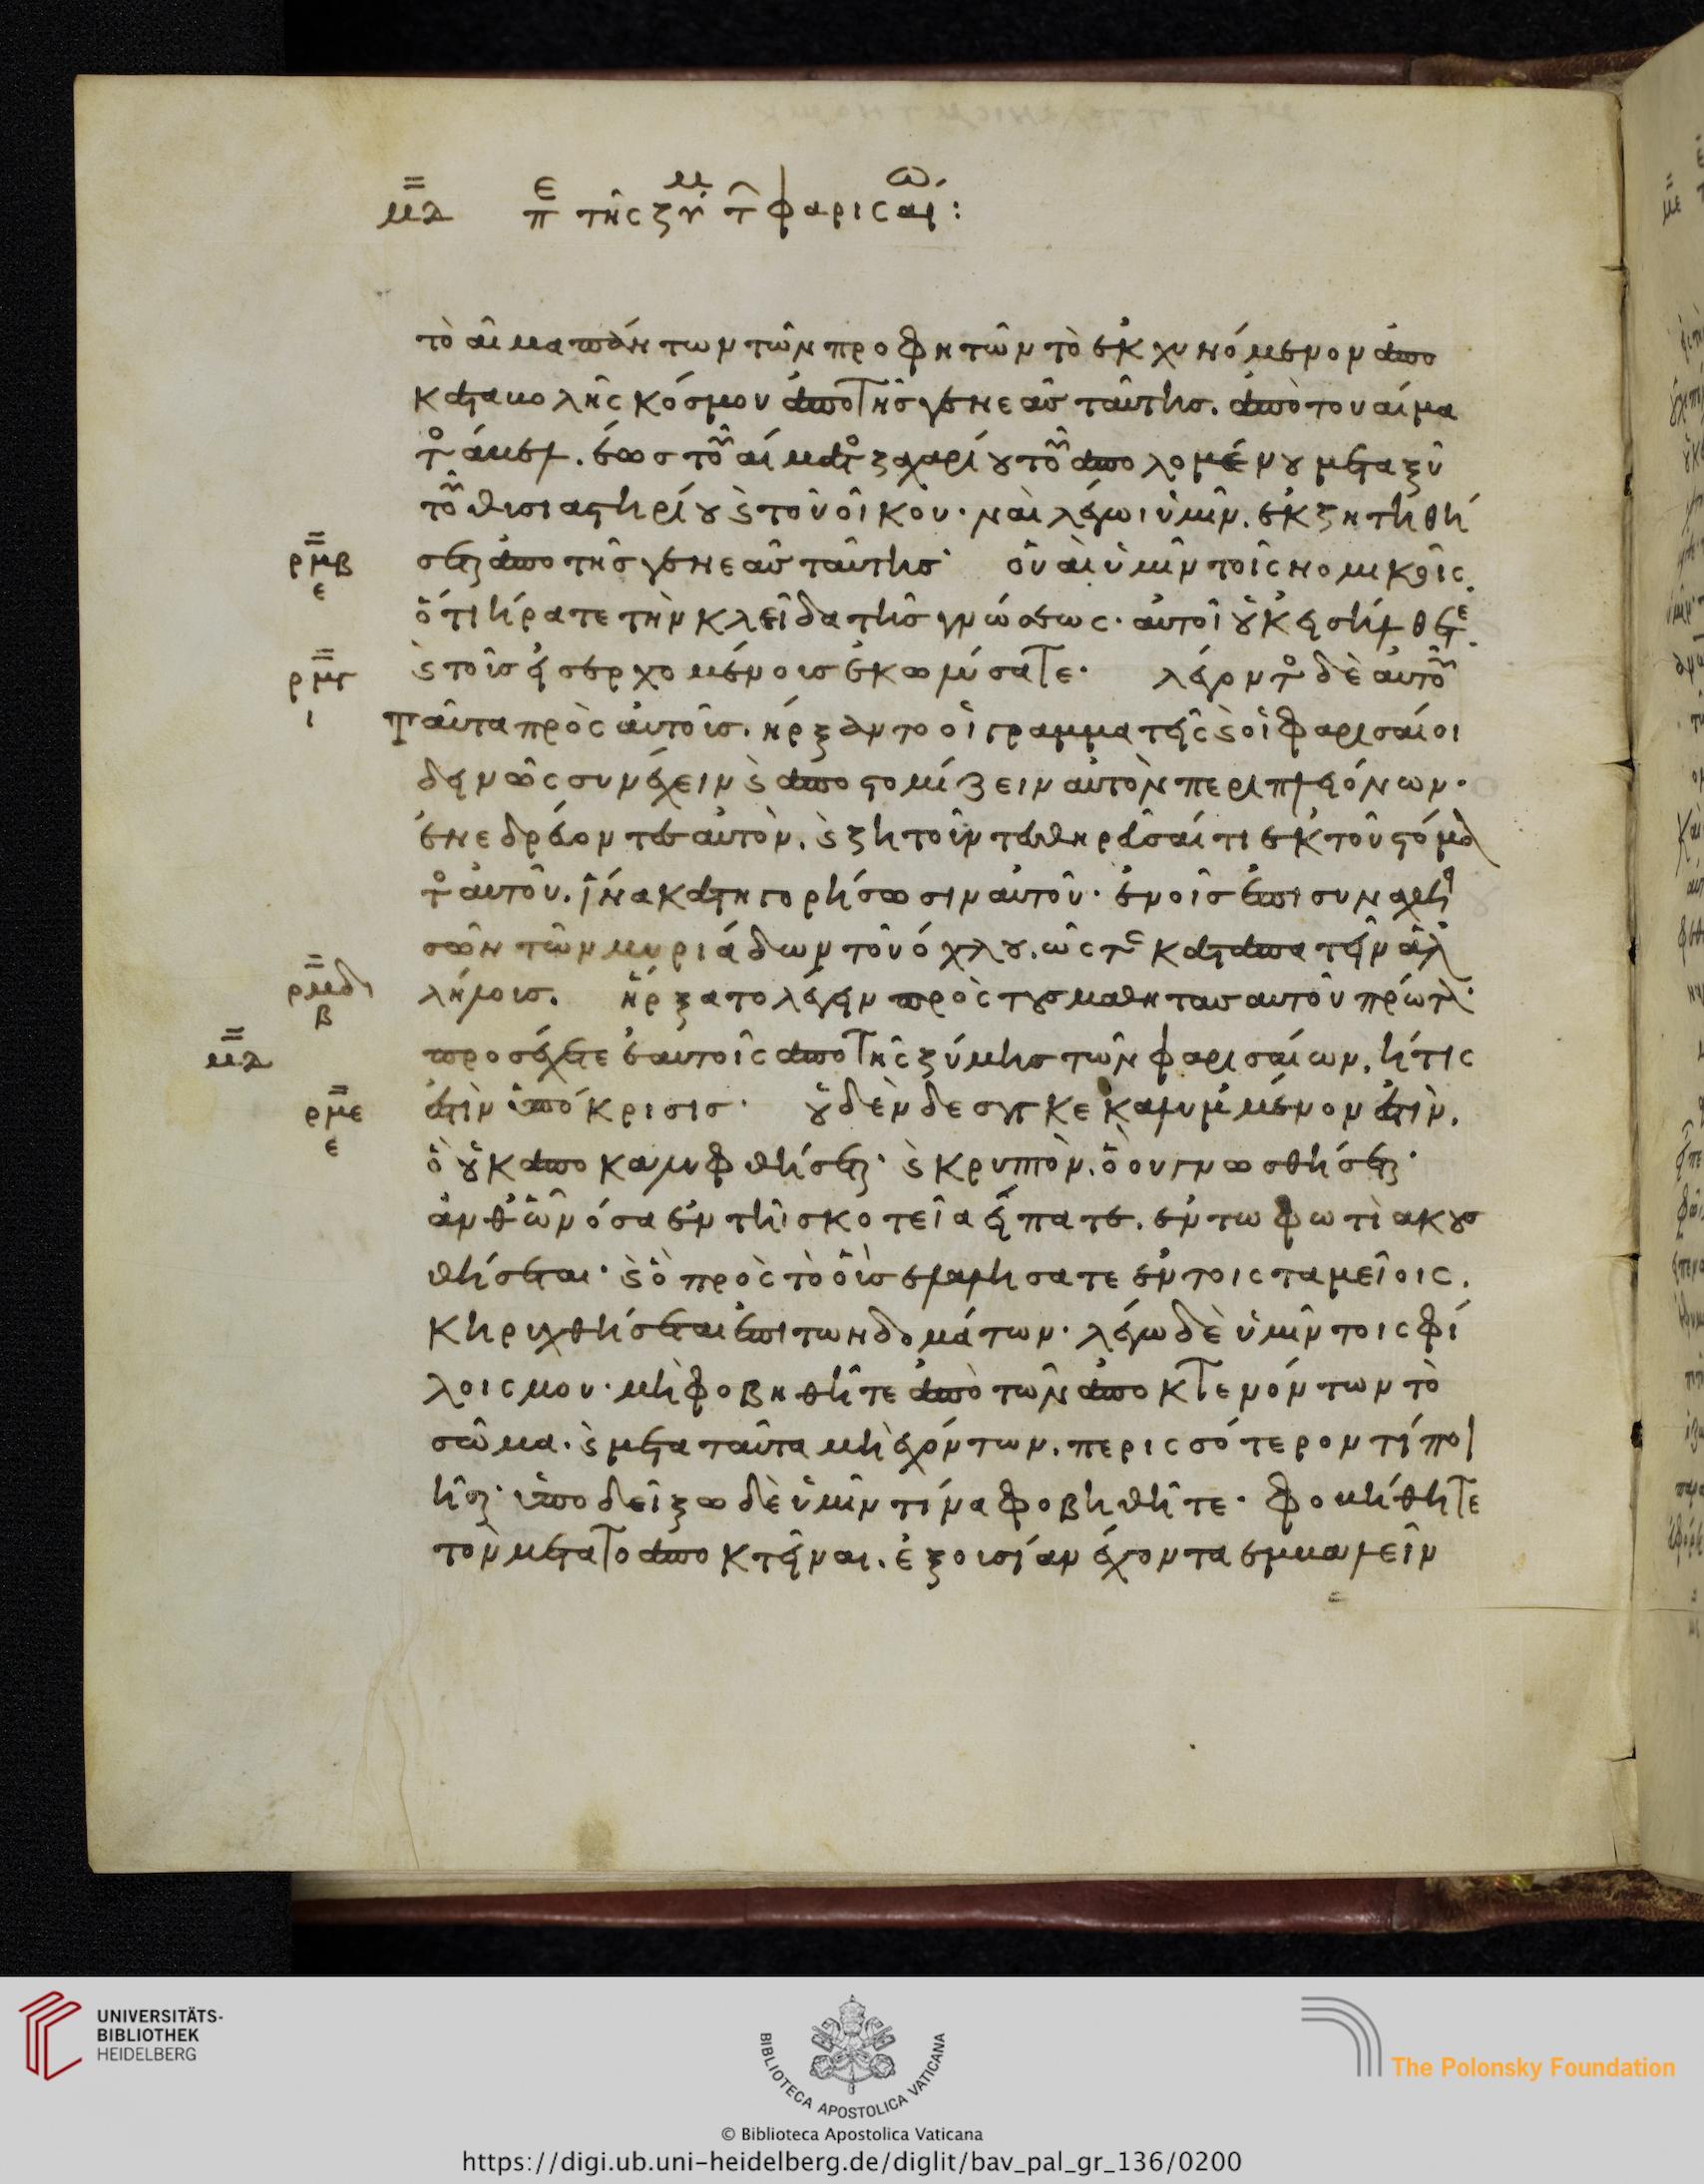 μδ πε τῆς ζύμ τ φαρισαίω:
τὸ αἷμα πάντων τῶν προφητῶν τὸ ἐκχυνόμενον ἀπο
καταβολῆς κόσμου ἀπο τῆσ γενεᾶσ ταύτησ. ἀπὸ του αἵμα
τος ἄβελ. ἕωσ τοῦ αἵματος ζαχαρίου τοῦ ἀπολομένου μεταξὺ
τοῦ θυσιαστηρίου ϗ τοῦ οἴκου. ναὶ λέγωι ὑμῖν. ἐκζητηθή
ρμβ ε σεται ἀπο τῆσ γενεᾶσ ταύτησ· οὐαὶ ὑμῖν τοῖς νομικοῖς.
ὅτι ἤρατε τὴν κλεῖδα τῆσ γνώσεως. αὐτοὶ οὐκ εἰσήλθετε.
ρμγ ι ϗ τοῖσ εἰσερχομένοισ ἐκωλύσατε. λέγοντος δὲ αὐτοῦ
ταῦτα πρὸς αὐτοῖσ. ἤρξαντο οἱ γραμματεῖς ϗ οἱ φαρισαίοι
δεινῶς συνέχειν ϗ ἀποστομίζειν αὐτὸν περι πλειόνων.
ἐνεδρέοντεσ αὐτὸν. ϗ ζητοῦντεσ θηρᾶσαί τι ἐκ τοῦ στόμα
τος αὐτοῦ. ἵνα κατηγορήσωσιν αὐτοῦ. ἐν οἷσ ἐπισυναχθει
σῶν τῶν μυριάδων τοῦ ὄχλου. ὥς τε καταπατεῖν ἀλ
ρμδ β λήλοισ. ἤρξατο λέγειν πρὸς τουσ μαθητασ αυτοῦ πρῶτον·
μδ προσέχετε ἑαυτοῖς ἀπο τῆς ζύμησ τῶν φαρισαίων. ἥτις
ρμε ε ἐστὶν ὑπόκρισισ. οὐδὲν δε συγκεκαλυμμένον ἐστὶν.
ὃ οὐκ ἀποκαλυφθήσεται· ϗ κρυπτὸν. ὃ ου γνωσθήσεται·
ἀνθ ὧν ὅσα ἐν τῆι σκοτεία εἴπατε. ἐν τω φωτὶ ακουσ
θήσεται· ϗ ὃ πρὸς τὸ οὖσ ελαλησατε ἐν τοις ταμείοις.
κηρυχθήσεται ἐπι των δομάτων. λέγω δὲ ὑμῖν τοις φί
λοις μου. μὴ φοβηθῆτε ἀπὸ τῶν ἀποκτενόντων τὸ
σῶμα. ϗ μετα ταῦτα μὴ ἐχόντων. περισσότερον τί ποι
ῆσαι. ὑποδείξω δὲ ὑμῖν τίνα φοβηθῆτε. φοβήθητε
τὸν μετα το ἀποκτεῖναι. ἐξουσίαν ἔχοντα εμβαλεῖν
UNIVERSITÄTS-
BIBLIOTHEK
HEIDELBERG
BIBLIOTECA APOSTOLICA VATICANA
The Polonsky Foundation
© Biblioteca Apostolica Vaticana
https://digi.ub.uni-heidelberg.de/diglit/bav_pal_gr_136/0200